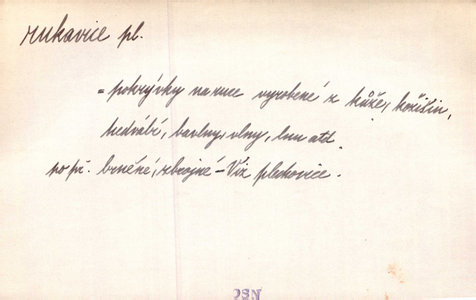 rukavice pl.
= pokrývky na ruce vyrobené z kůže, kožišin,
hedvábí, bavlny, vlny, lnu atd.
po př. brněné, zbrojné - Viz plechovice.